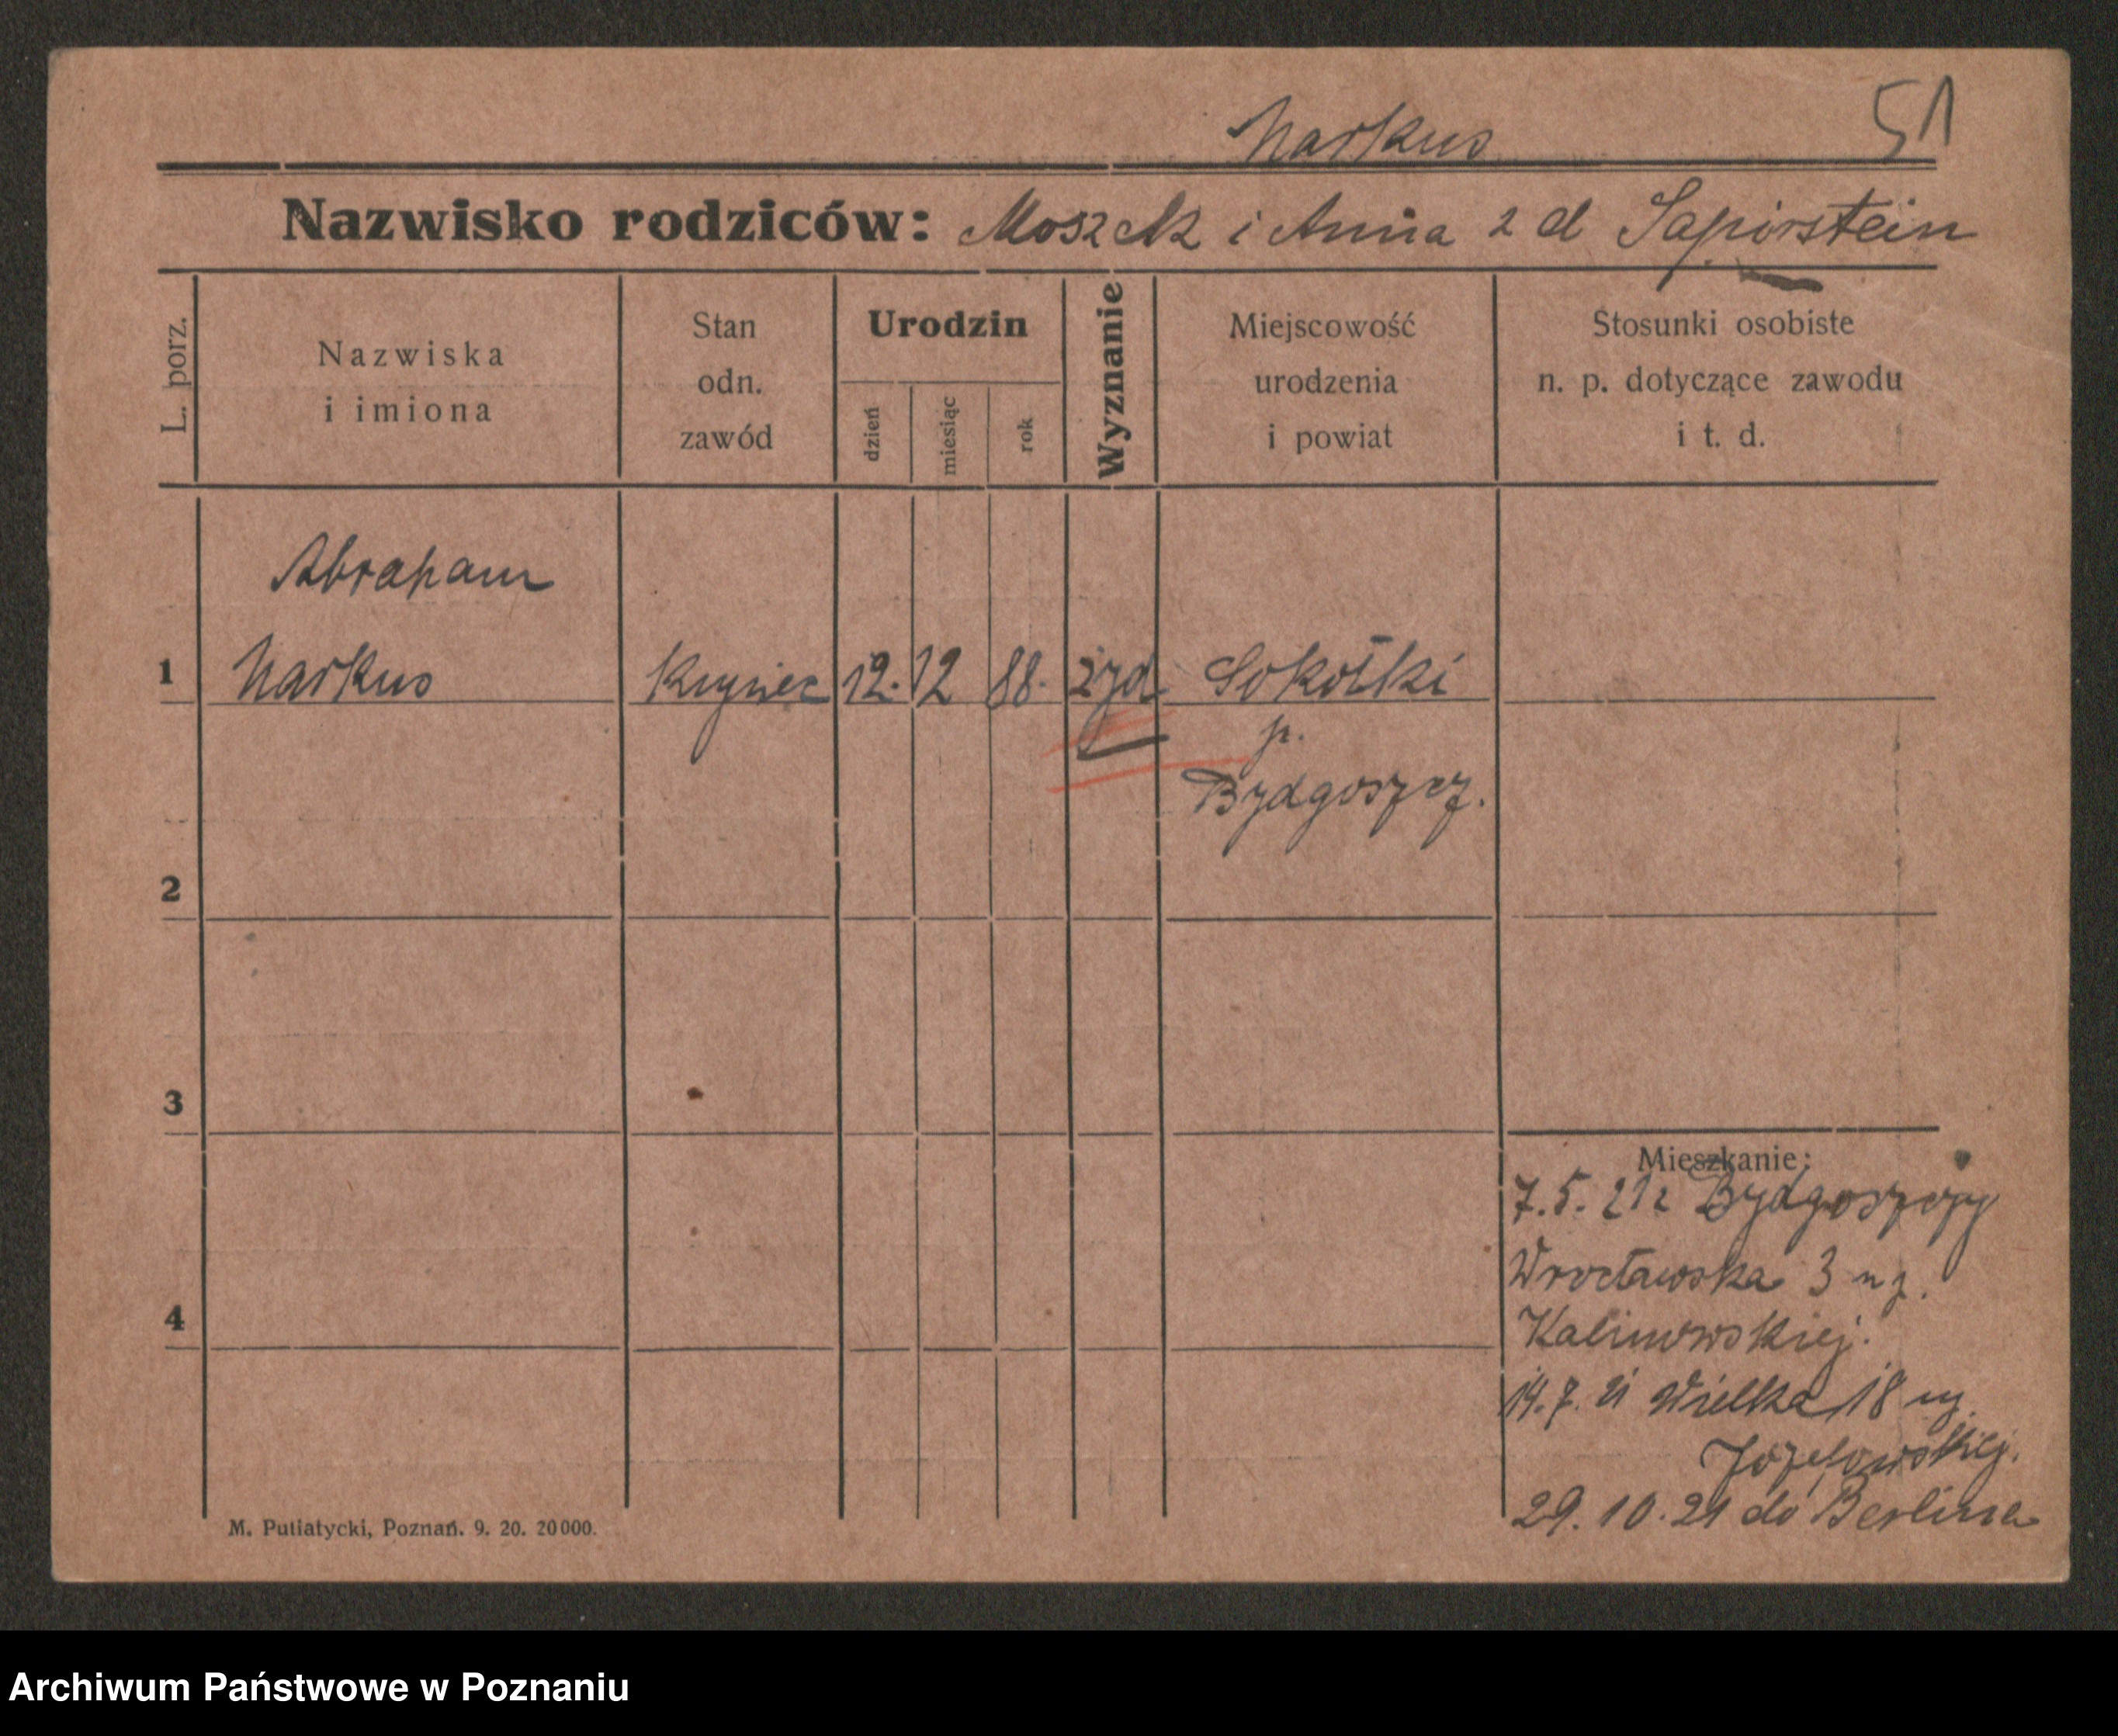 Markus 51
Nazwisko rodziców: Moszek i Anna z d Sapirstein
L. porz.
Nazwiska
i imiona
Stan
odn.
zawód
Urodzin
dzień
miesiąc
rok
Wyznanie
Miejscowość
urodzenia
i powiat
Stosunki osobiste
n. p. dotyczące zawodu
i t. d.
Abraham
1 Markus 12. 12 88. żyd Sokołki
p.
Bydgoszcz.
2
3
4
Mieszkanie:
7. 5. 21 z Bydgoszczy
Wrocławska 3
Kalinowskiej.
14. 7. 21 Wielka 18
Józefowskiej.
29. 10. 21 do Berlina
M. Putiatycki, Poznań. 9. 20. 20000.
Archiwum Państwowe w Poznaniu